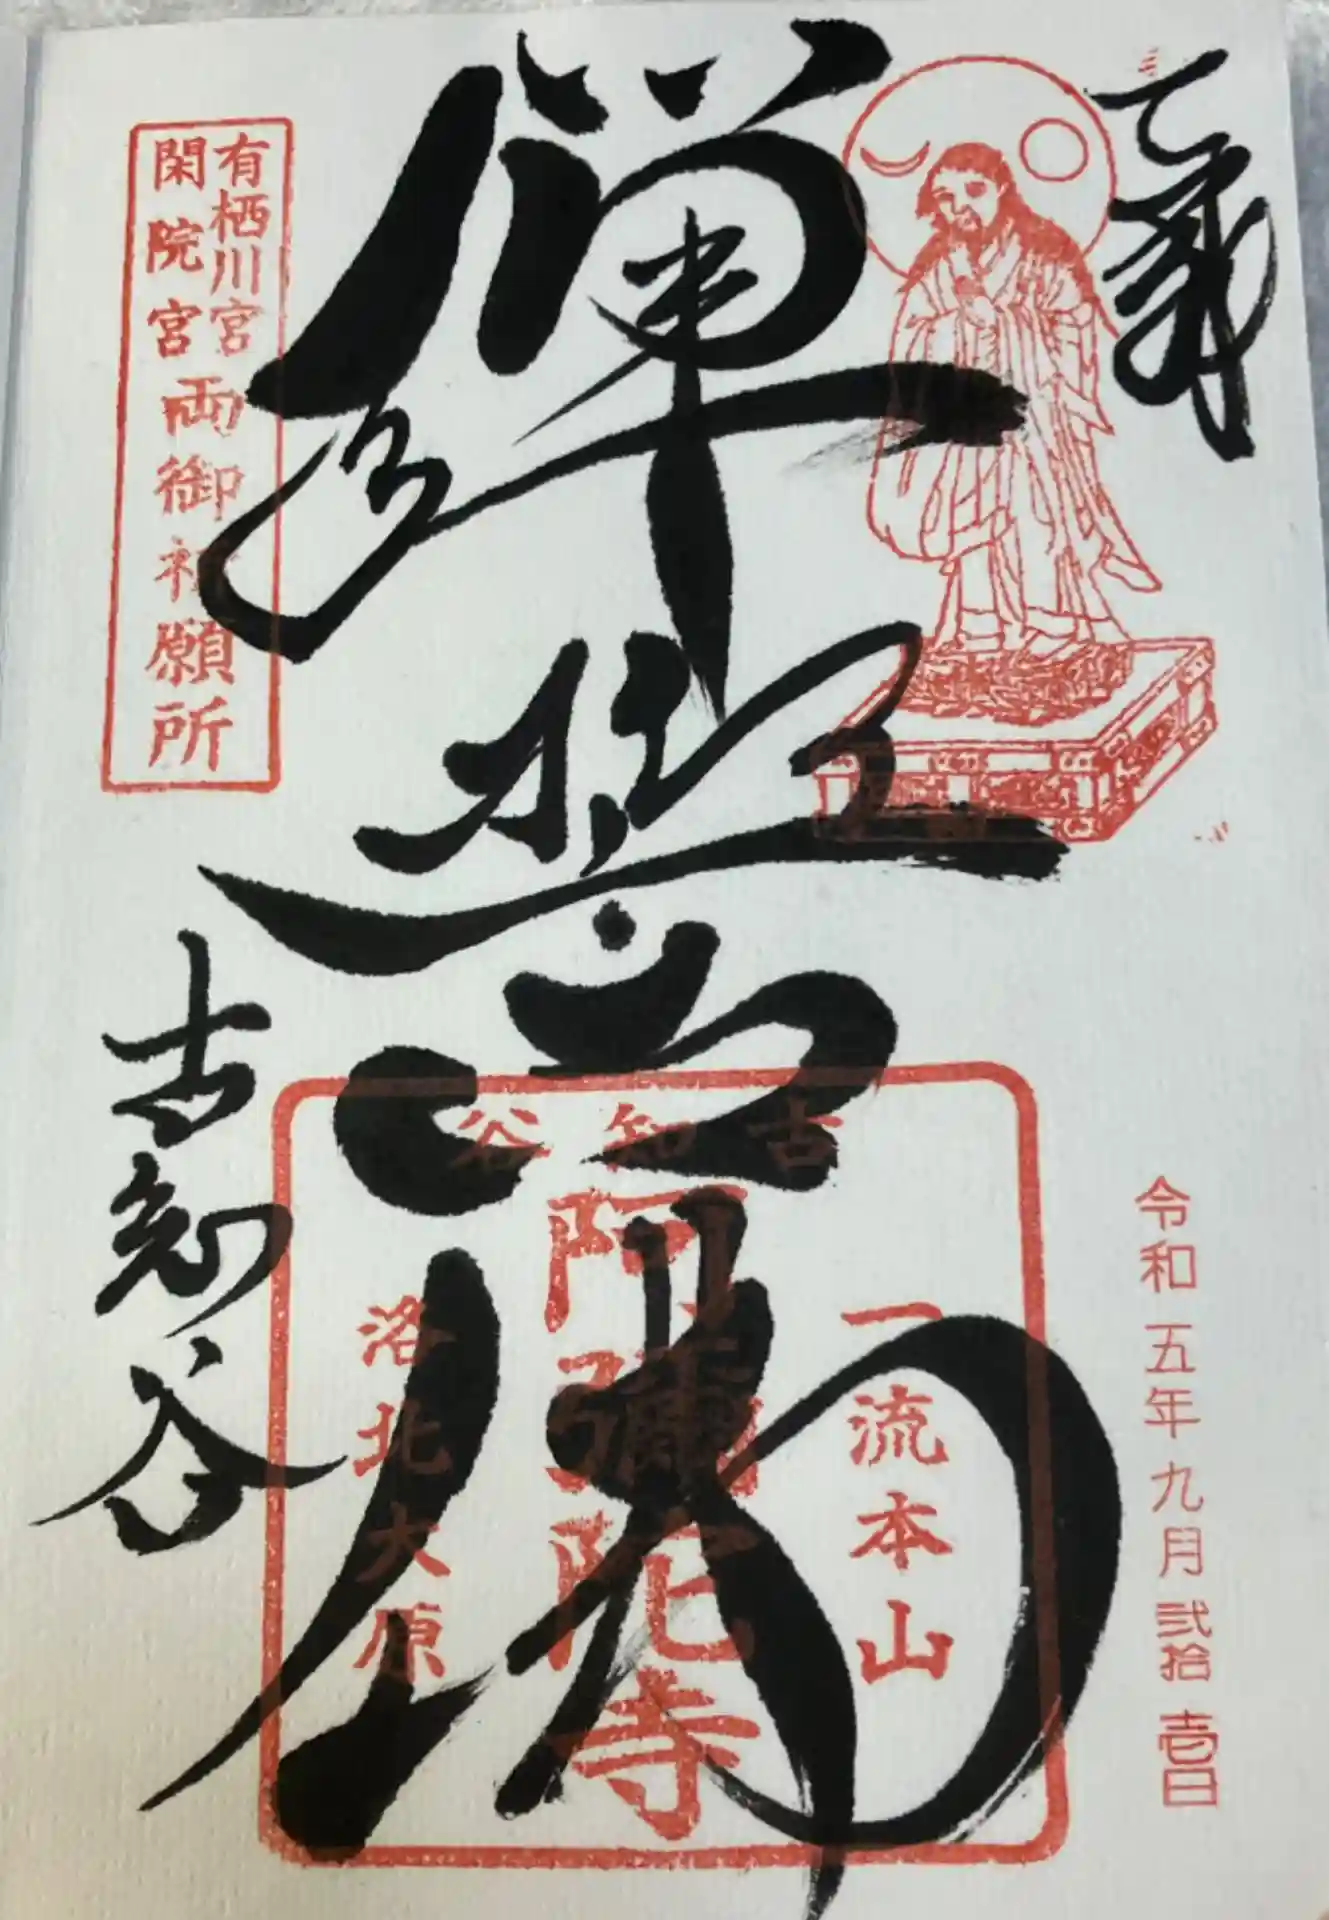 令和五年九月弐拾壱日
彈誓佛
古知谷
一流本山
阿彌陀寺
洛北大原
有栖川宮
閑院宮
両御祈願所
古知谷